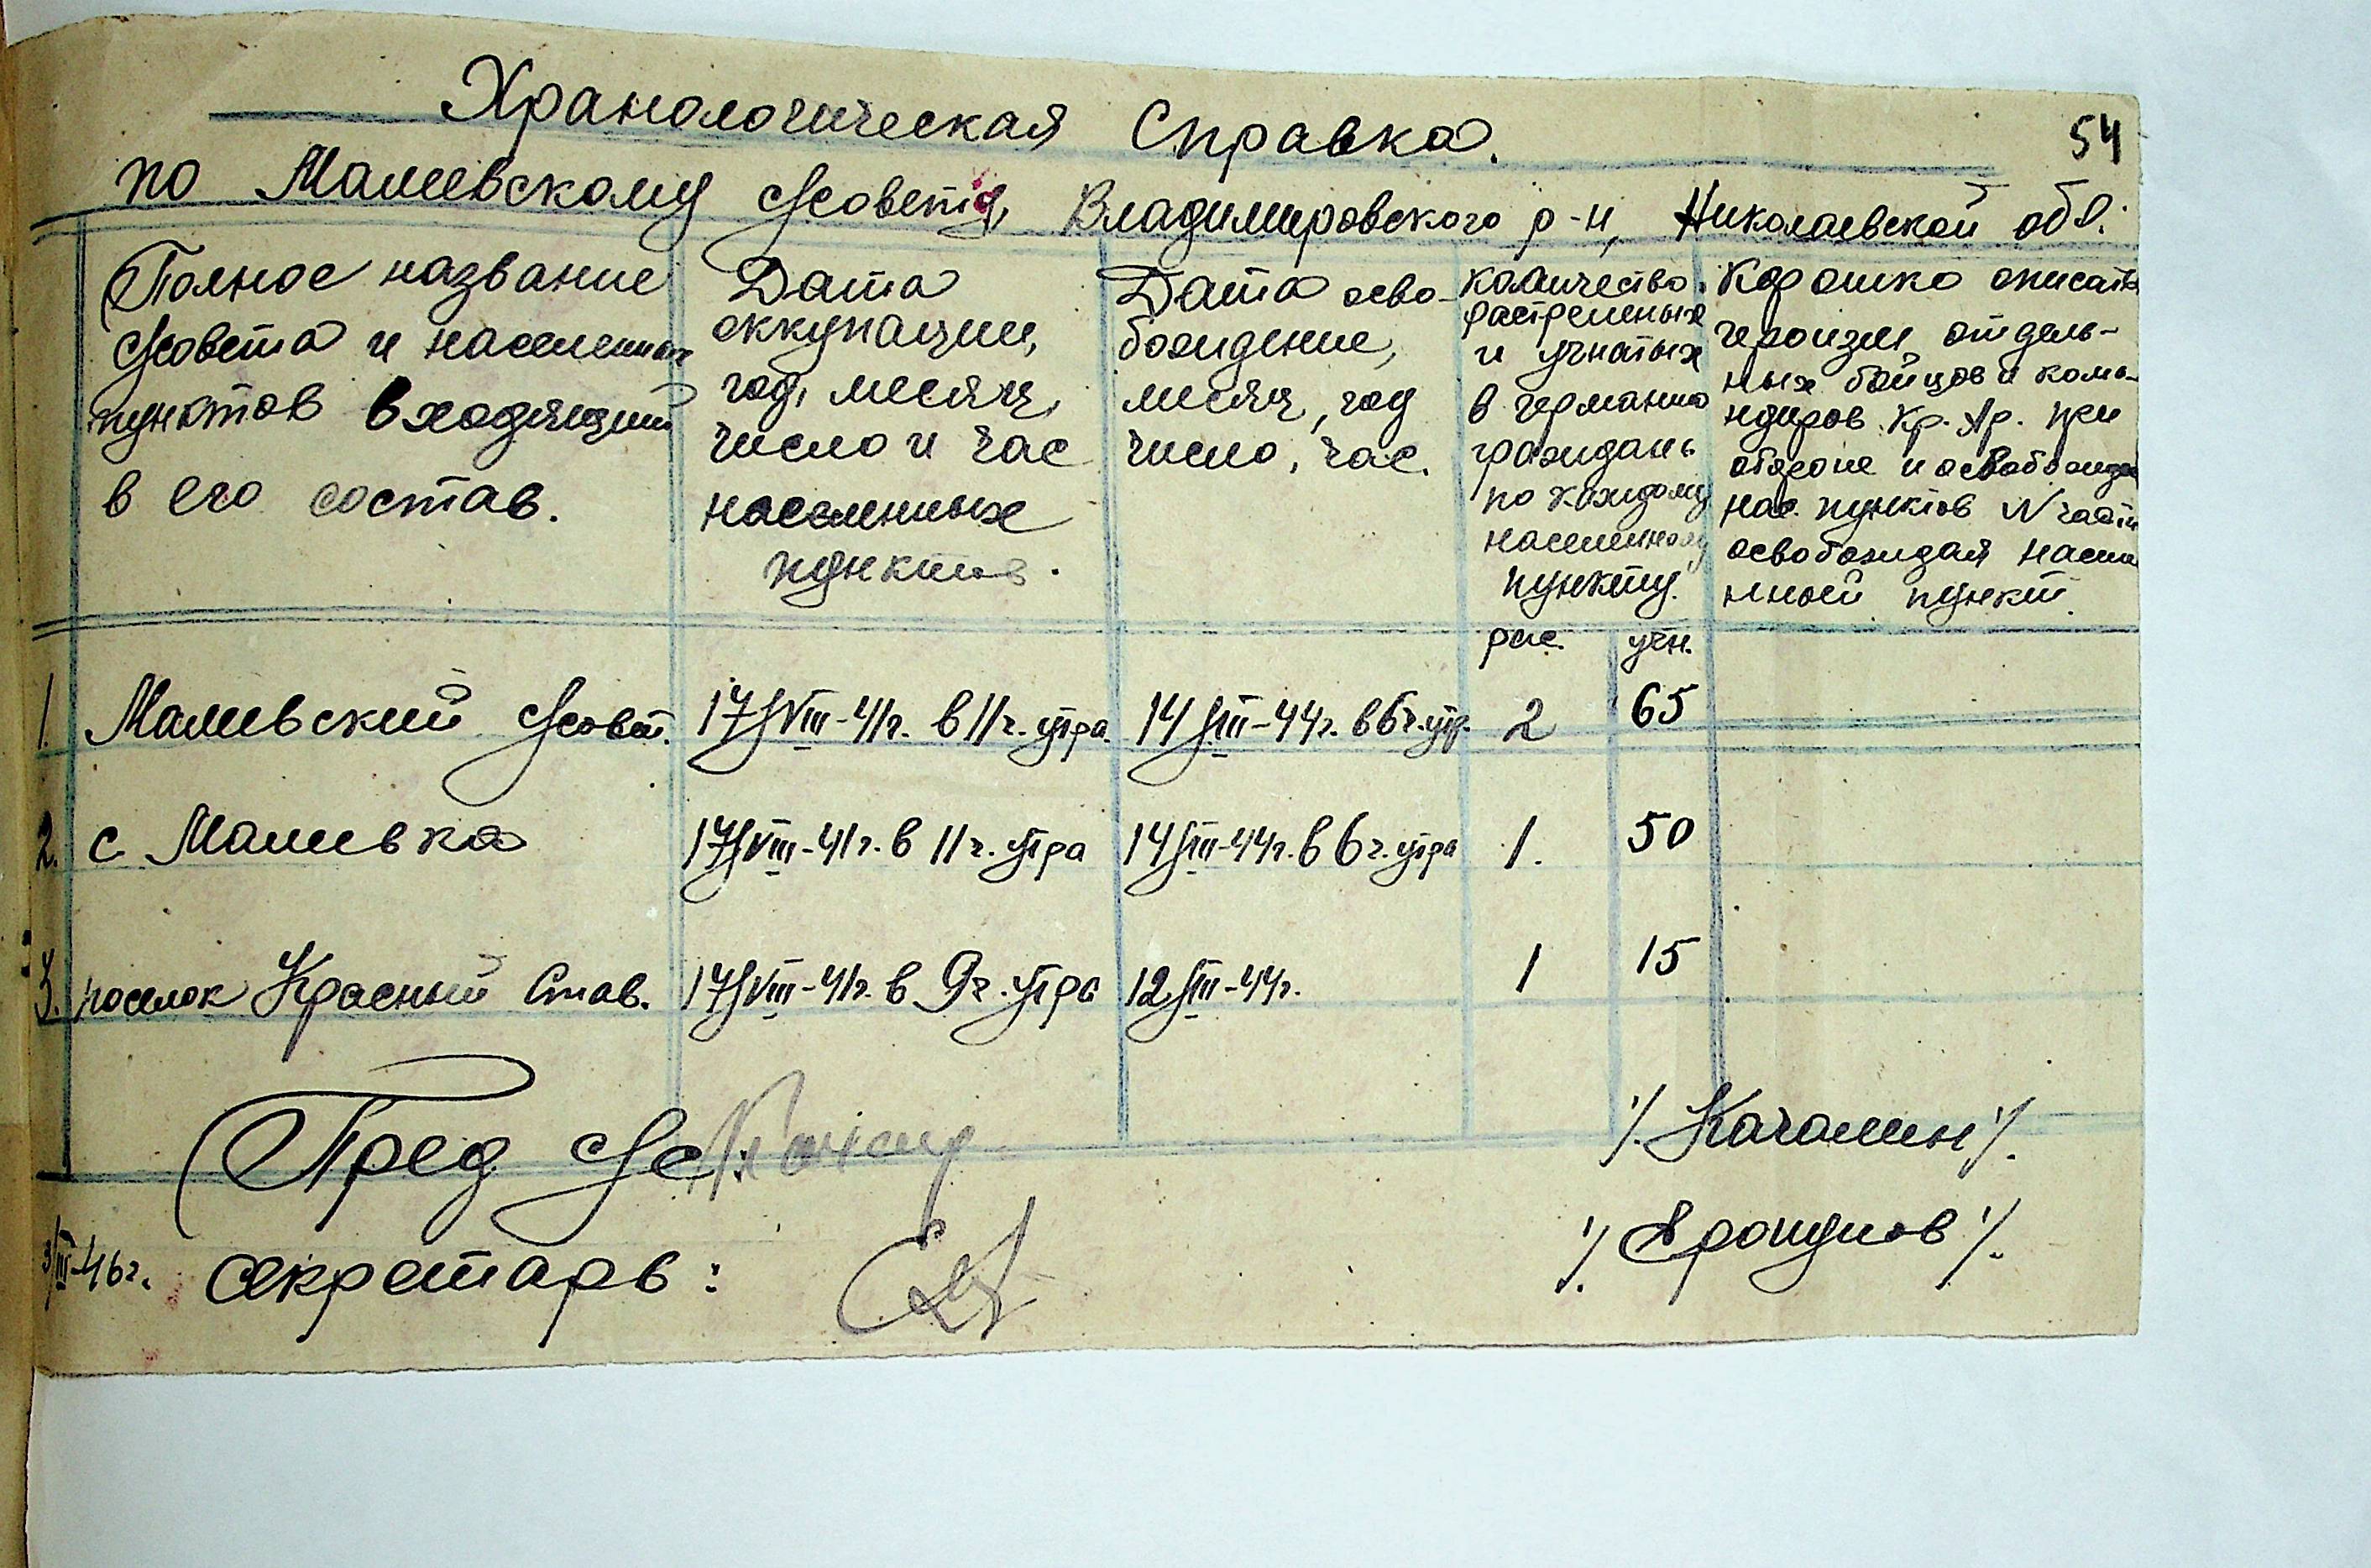 54
Хранологическая Справка.
по Малеевскому с/совету, Владимировского р-н, Николаевской обл.
Полное название
с/совета и населенных
пунктов входящий
в его состав.
Дата
оккупации,
год, месяц,
число и час
населенных
пунктов.
Дата осво-
бождение,
месяц, год
число, час.
количество
растреленых
и угнатых
в германию
граждань
по каждому
населенному
пункту.
рас. угн.
Корошко описать
героизм отдель-
ных бойцов и кома-
ндиров Кр. Ар. при
обороне и освобожде
нас. пунктов N части
освобождая насел
нный пункт.
1. Малеевский с/совет. 17/VIII-41г. в 11г. утра. 14/III-44г. в 6г. утр. 2 65
2. с Малеевка 17/VIII-41г. в 11г. утра 14/III-44г. в 6г. утра 1. 50
3. поселок Красный Став. 17/VIII-41г. в 9г. утра 12/III-44г. 1 15
Пред с/с: /Качалин/.
3/III-46г. секретарь: